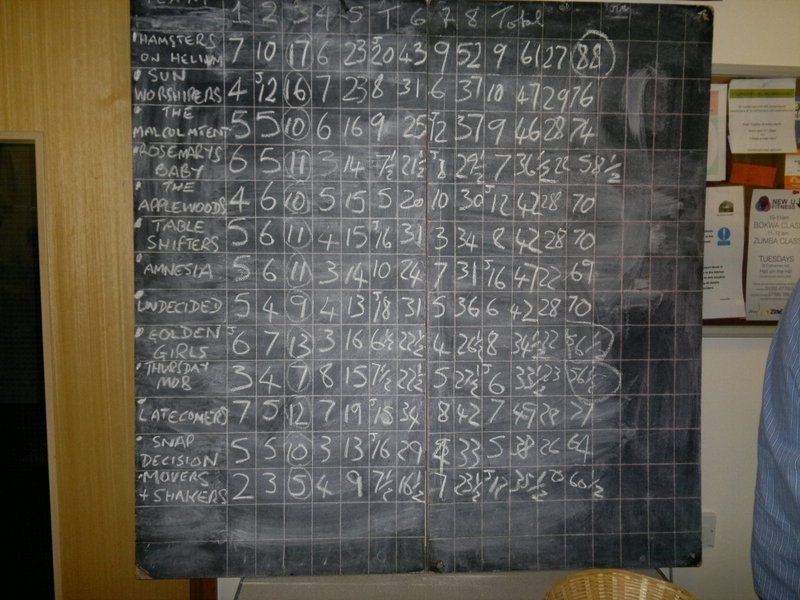 TEAM 1 2 3 4 5 T 6 7 8 Total
HAMSTERS ON HELIUM 7 10 17 6 23 J20 43 9 52 9 61 27 88
SUN WORSHIPERS 4 J12 16 7 23 8 31 6 37 10 47 29 76
THE MALCOLMTENT 5 5 10 6 16 9 25 J12 37 9 46 28 74
ROSEMARY'S BABY 6 5 11 3 14 7½ 21½ J8 29½ 7 36½ 22 58½
THE APPLEWOODS 4 6 10 5 15 5 20 10 30 J12 42 28 70
TABLE SHIFTERS 5 6 11 4 15 J16 31 3 34 8 42 28 70
AMNESIA 5 6 11 3 14 10 24 7 31 J16 47 22 69
UNDECIDED 5 4 9 4 13 J18 31 5 36 6 42 28 70
GOLDEN GIRLS J6 7 13 3 16 6½ 22½ 4 26½ 8 34½ 22 56½
THURSDAY MOB 3 4 7 8 15 7½ 22½ 5 27½ J6 33½ 23 56½
LATECOMERS 7 5 12 7 19 J15 34 8 42 7 49 28 77
SNAP DECISION 5 5 10 3 13 J16 29 4 33 5 38 26 64
MOVERS + SHAKERS 2 3 5 4 9 7½ 16½ 7 23½ J12 35½ 60½
NEW U
FITNESS
BOKWA CLASS
ZUMBA CLASS
TUESDAYS